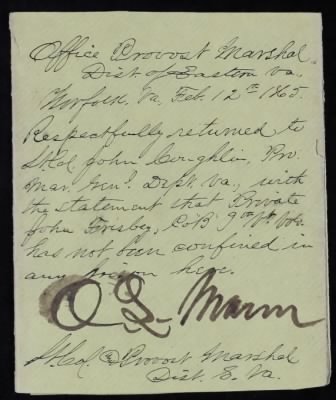 Office Provost Marshal
Dist. of Eastern Va.,
Norfolk, Va, Feb. 12th 1865.
Respectfully returned to
Lt. Col. John Coughlin, Pro.
Mar. Genl. Dept. Va., with
the statement that Private
John Frisbey, Co B 9th Vt. Vols.
has not been confined in
any prison here.
O L Mann
Lt. Col. & Provost Marshal
Dist. E. Va.